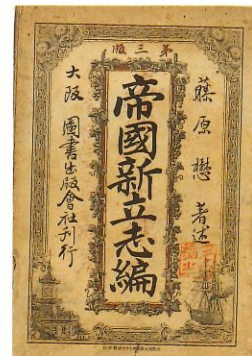 版三第
藤原懋 著述
帝國新立志編
大阪 圖書出版會社刊行